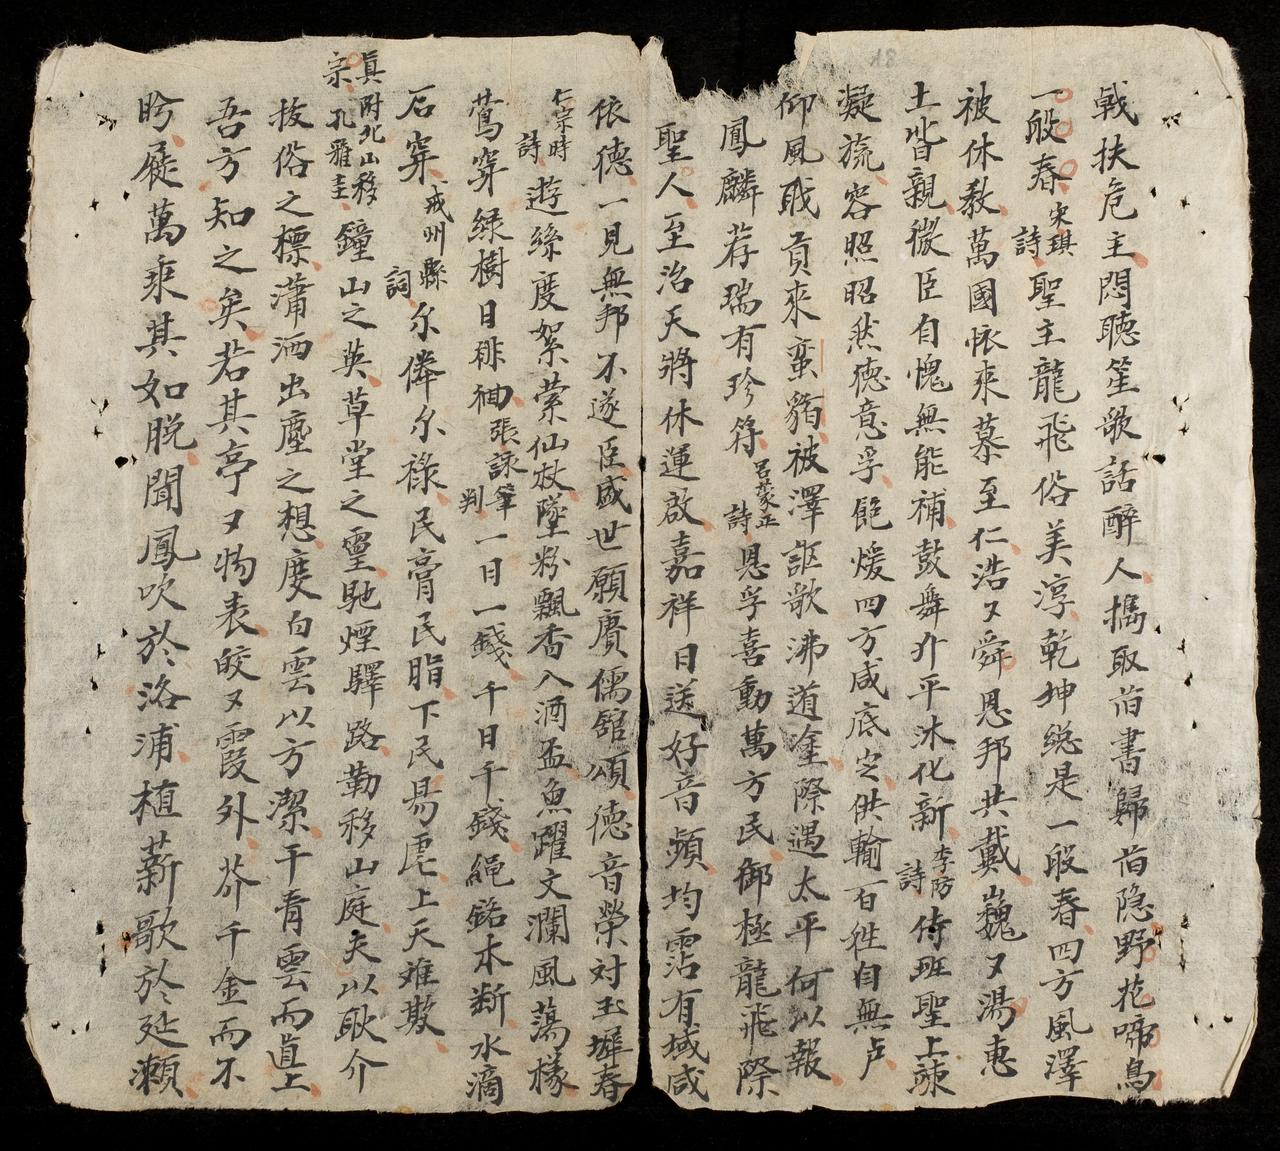 戟扶危主悶聽笙歌話醉人携取旧書歸旧隐野花啼鳥
一般春宋琪詩聖主龍飛俗美淳乾坤総是一般春四方風澤
被休教萬國怀来慕至仁浩又舜恩邦共戴巍又湯惠
土皆親微臣自愧無能補鼓舞升平沐化新李昉詩侍班聖上疎
凝旒容照昭然德意孚飽煖四方咸底定供輸百姓自無卢
仰風戢貢来蛮貊被澤謳歌沸道塗際遇太平何以報
鳳麟荐瑞有珍符呂蒙正詩恩孚喜動萬方民御極龍飛際
聖人至治天將休運啟嘉祥日送好音頻均霑有域咸
依德一見無邦不遂臣盛世願賡儒舘頌德音榮对玉墀春
仁宗時詩遊絲度絮縈仙杖墜粉飄香入酒盃魚躍文瀾風蕩樣
鶯穿緑樹日徘徊張詠筆判一日一錢千日千錢繩鋸木断水滴
石穿戒州縣詞尔俸尔祿民膏民脂下民易虐上天难欺
真宗附北山移孔雅圭鐘山之英草堂之灵馳煙驛路勒移山庭夫以耿介
拔俗之標瀟洒出塵之想度白雲以方潔干青雲而直上
吾方知之矣若其亭又物表皎又霞外芥千金而不
盻屣萬乘其如脱聞鳳吹於洛浦植薪歌於延瀨